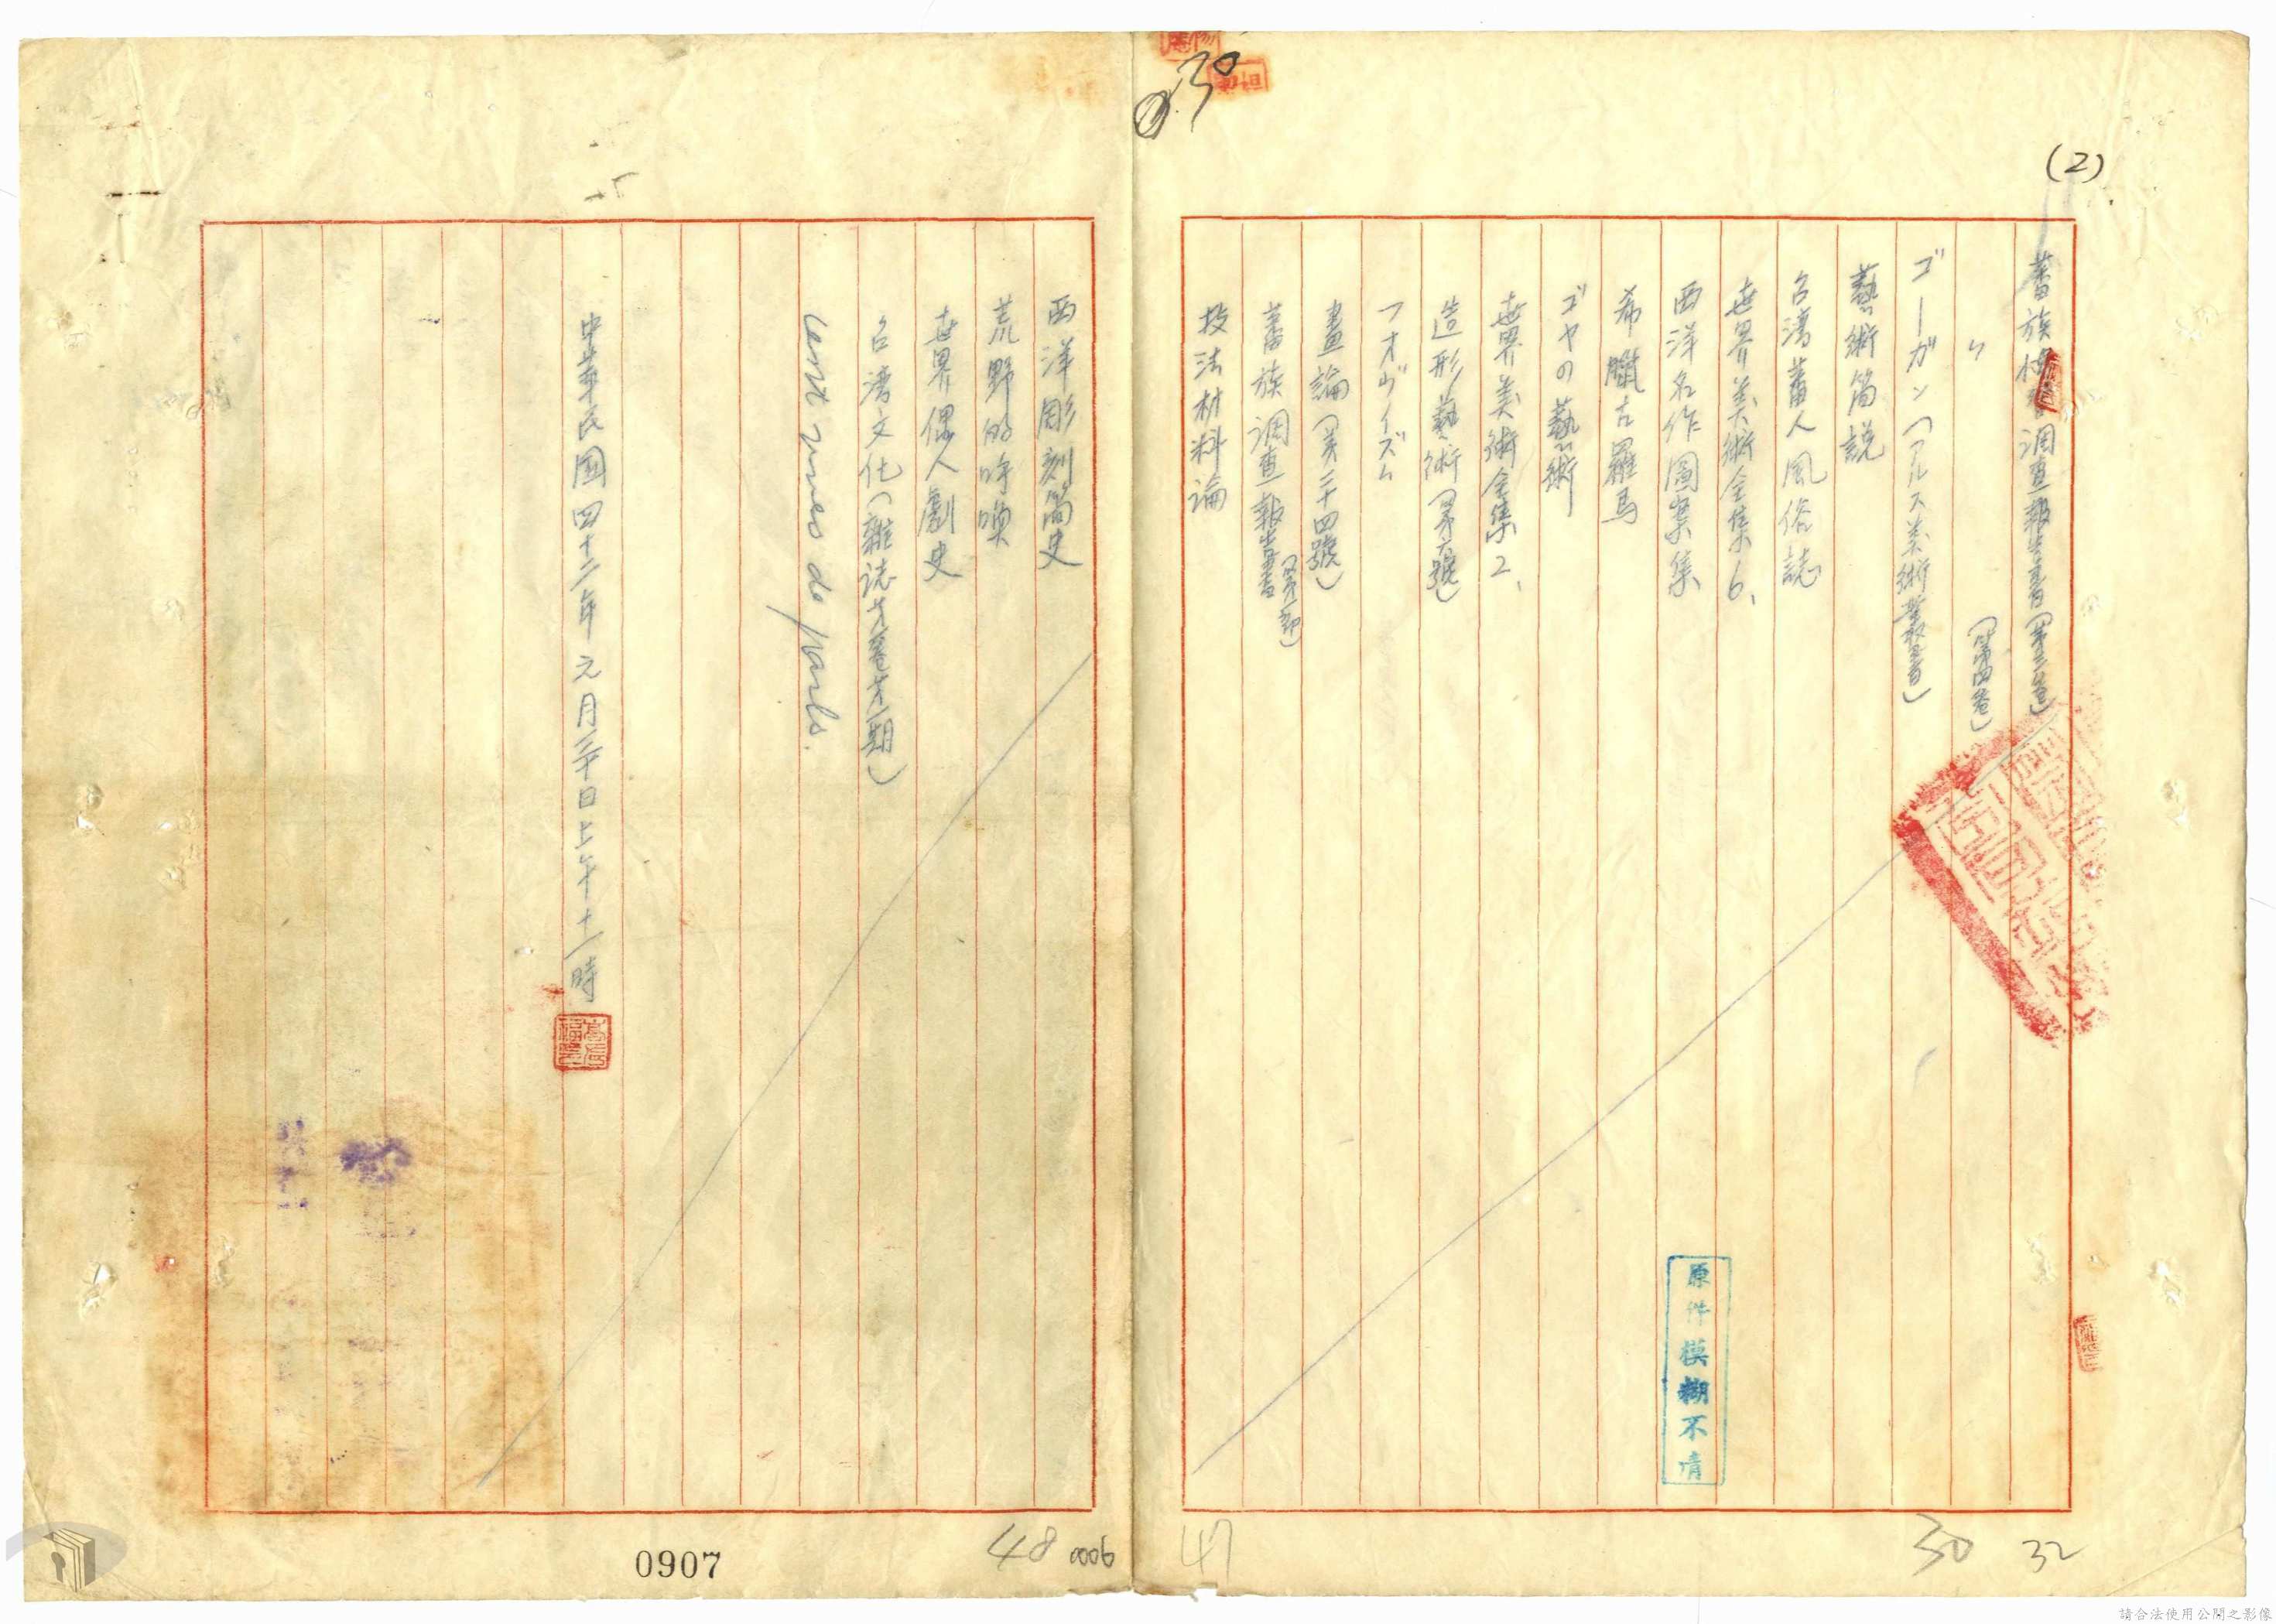 (2)
030
蕃族調查報告書(第三卷)
〃 (第四卷)
ゴーガン(アルス美術叢書)
藝術簡説
台湾蕃人風俗誌
世界美術全集6、
西洋名作圖案集
希臘古羅馬
ゴヤの藝術
世界美術全集2、
造形藝術(第六號)
フオヴイズム
畫論(第二十四號)
蕃族調查報告書(第一部)
技法材料論
西洋彫刻簡史
荒野的呼喚
世界偶人劇史
台湾文化(雜誌
cent vues de paris.
中華民國四十二年元月三十日上午十一時
原件模糊不清
47
30
32
48
0006
0907
請合法使用公開之影像